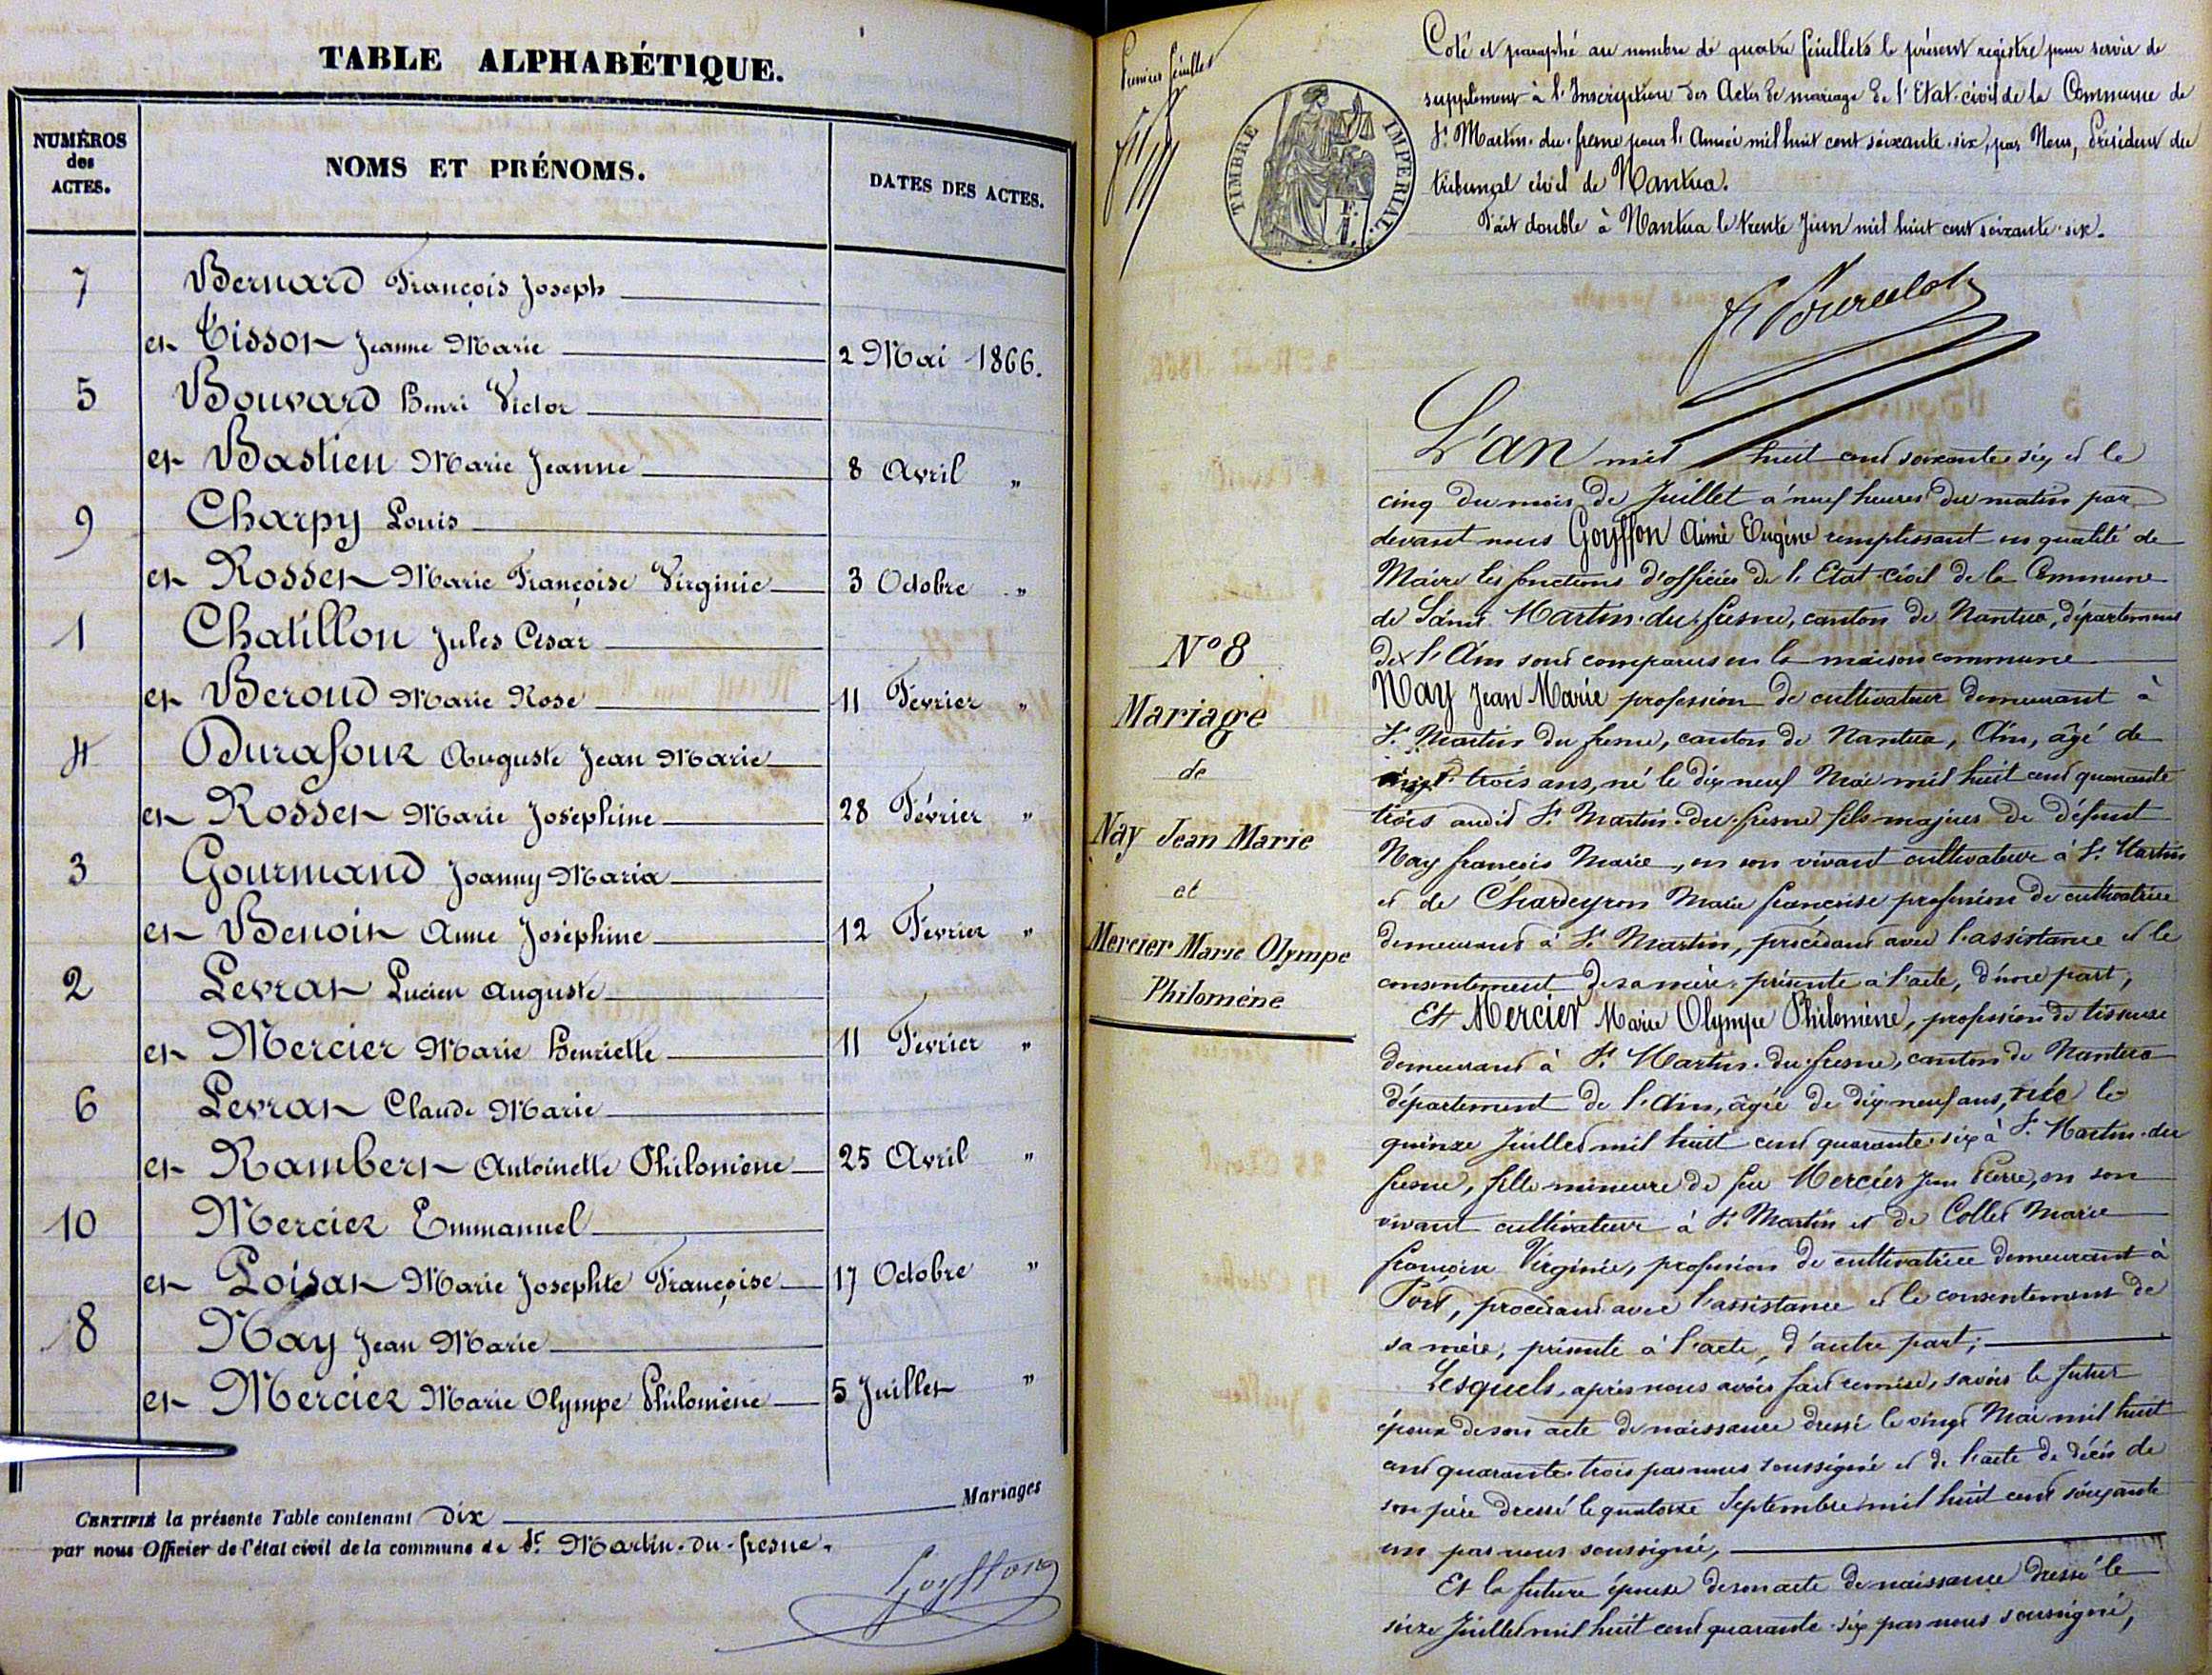 TABLE ALPHABÉTIQUE.
NUMÉROS des ACTES.
NOMS ET PRÉNOMS.
DATES DES ACTES.
7 Bernard François Joseph
et Tissot Jeanne Marie 2 Mai 1866.
5 Bouvard Henri Victor
et Bastien Marie Jeanne 8 Avril "
9 Charpy Louis
et Rosset Marie Françoise Virginie 3 Octobre "
1 Chatillon Jules César
et Beroud Marie Rose 11 Février "
4 Durafour Auguste Jean Marie
et Rosset Marie Joséphine 28 Février "
3 Gourmand Joanny Maria
et Benoit Anne Joséphine 12 Février "
2 Levrat Lucien Auguste
et Mercier Marie Henriette 11 Février "
6 Levrat Claude Marie
et Rambert Antoinette Philomène 25 Avril "
10 Mercier Emmanuel
et Loisat Marie Josephte Françoise 17 Octobre "
8 Nay Jean Marie
et Mercier Marie Olympe Philomène 5 Juillet "
CERTIFIÉ la présente Table contenant dix Mariages
par nous Officier de l'état civil de la commune de St Martin-du-fresne.
Goyffon
Premier feuillet
TIMBRE IMPÉRIAL.
Coté et paraphé au nombre de quatre feuillets le présent registre pour servir de
supplément à l'Inscription des Actes de mariage de l'Etat-civil de la Commune de
St Martin-du-fresne pour l'Année mil huit cent soixante-six, par Nous, Président du
tribunal civil de Nantua.
Fait double à Nantua le trente Juin mil huit cent soixante-six.
N° 8
Mariage
de
Nay Jean Marie
et
Mercier Marie Olympe
Philomène
L'an mil huit cent soixante six, et le
cinq du mois de Juillet à neuf heures du matin par
devant nous Goyffon Aimé Eugène remplissant en qualité de
Maire les fonctions d'officier de l'Etat-civil de la Commune
de Saint Martin-du-fresne, canton de Nantua, département
de l'Ain sont comparus en la maison commune
Nay Jean Marie profession de cultivateur demeurant à
St Martin du fresne, canton de Nantua, Ain, âgé de
vingt trois ans, né le dix neuf Mai mil huit cent quarante
trois audit St Martin-du-fresne fils majeur de défunt
Nay françois Marie, en son vivant cultivateur à St Martin
et de Chardeyron Marie françoise profession de cultivatrice
demeurant à St Martin, procédant avec l'assistance et le
consentement de sa mère présente à l'acte, d'une part,
Et Mercier Marie Olympe Philomène, profession de tisseuse
demeurant à St Martin-du-fresne, canton de Nantua
département de l'Ain, âgée de dix-neuf ans, née le
quinze Juillet mil huit cent quarante-six à St Martin-du
fresne, fille mineure de feu Mercier Jean Pierre, en son
vivant cultivateur à St Martin et de Collet Marie
françoise Virginie, profession de cultivatrice demeurant à
Port, procédant avec l'assistance et le consentement de
sa mère, présente à l'acte, d'autre part;
Lesquels, après nous avoir fait remise, savoir le futur
époux de son acte de naissance dressé le vingt Mai mil huit
cent quarante-trois par nous soussigné et de l'acte de décès de
son père dressé le quatorze Septembre mil huit cent soixante
un par nous soussigné,
Et la future épouse de son acte de naissance dressé le
seize Juillet mil huit cent quarante-six par nous soussigné,